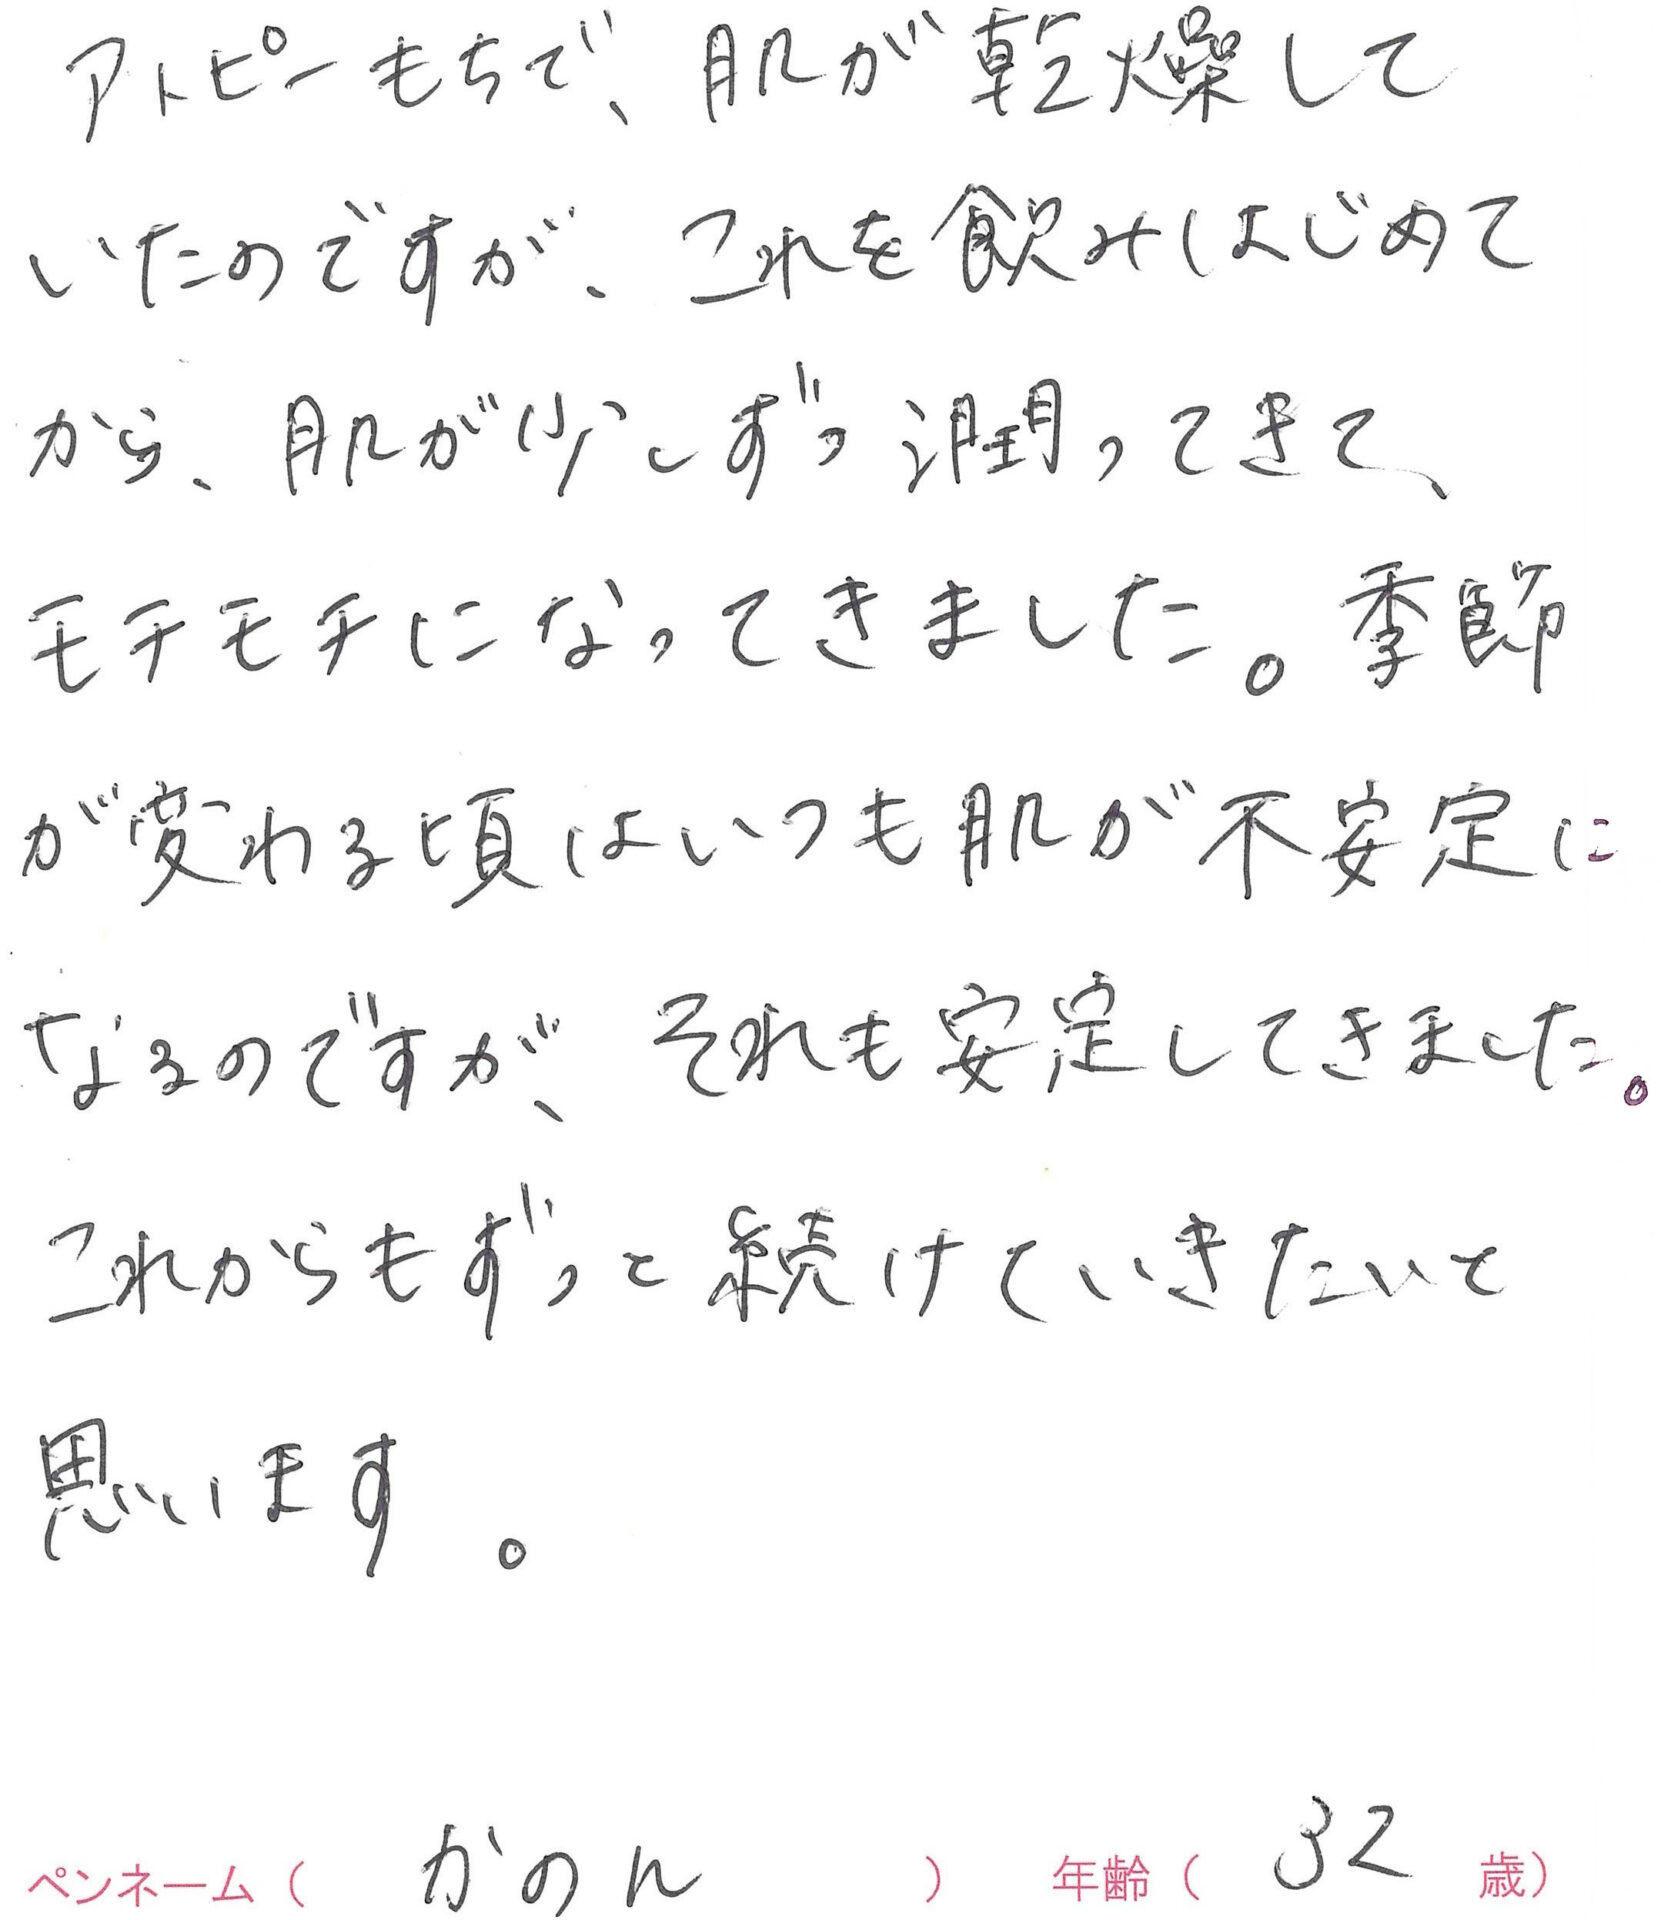 アトピーもちで、肌が乾燥して
いたのですが、これを飲みはじめて
から、肌が少しずつ潤ってきて、
モチモチになってきました。季節
が変わる頃はいつも肌が不安定に
なるのですが、それも安定してきました。
これからもずっと続けていきたいと
思います。
ペンネーム（ かのん ） 年齢（ 32 歳）